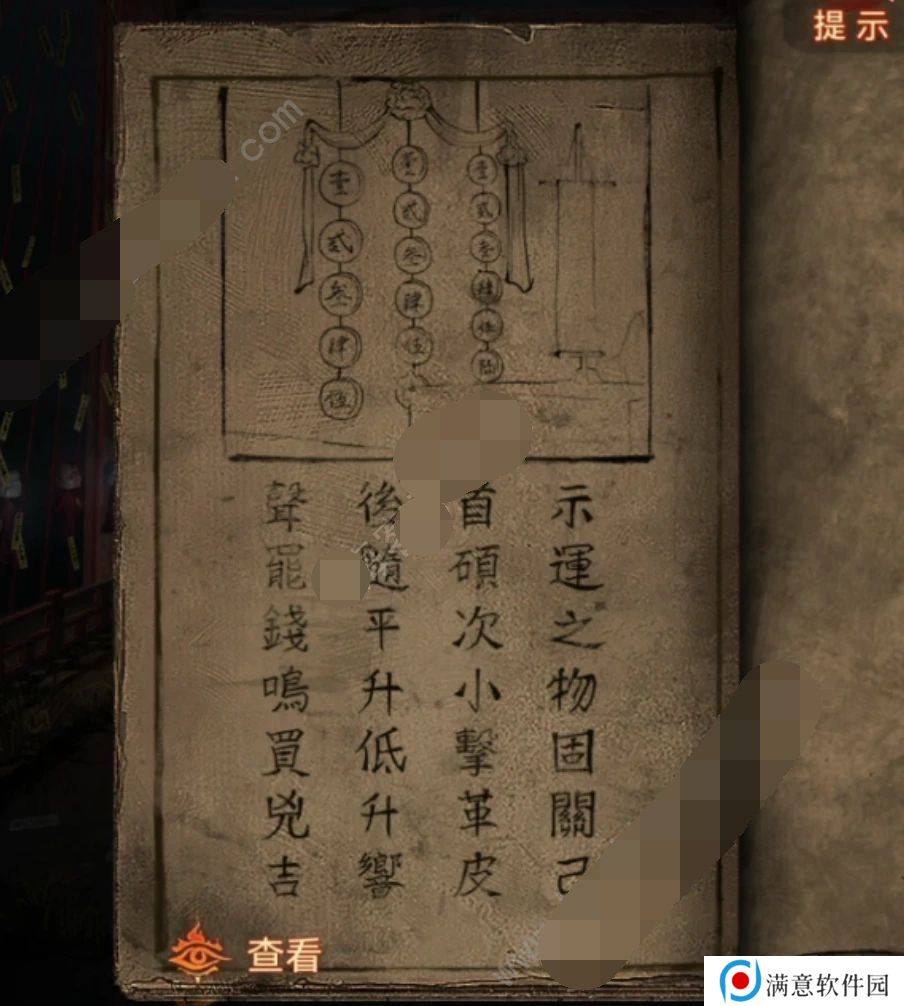 提示
壹
贰
叁
肆
伍
壹
贰
叁
肆
伍
壹
贰
叁
肆
伍
陆
示運之物固關己
首碩次小擊革皮
後隨平升低升響
聲罷錢鳴買兇吉
查看
com
www.
满意软件园